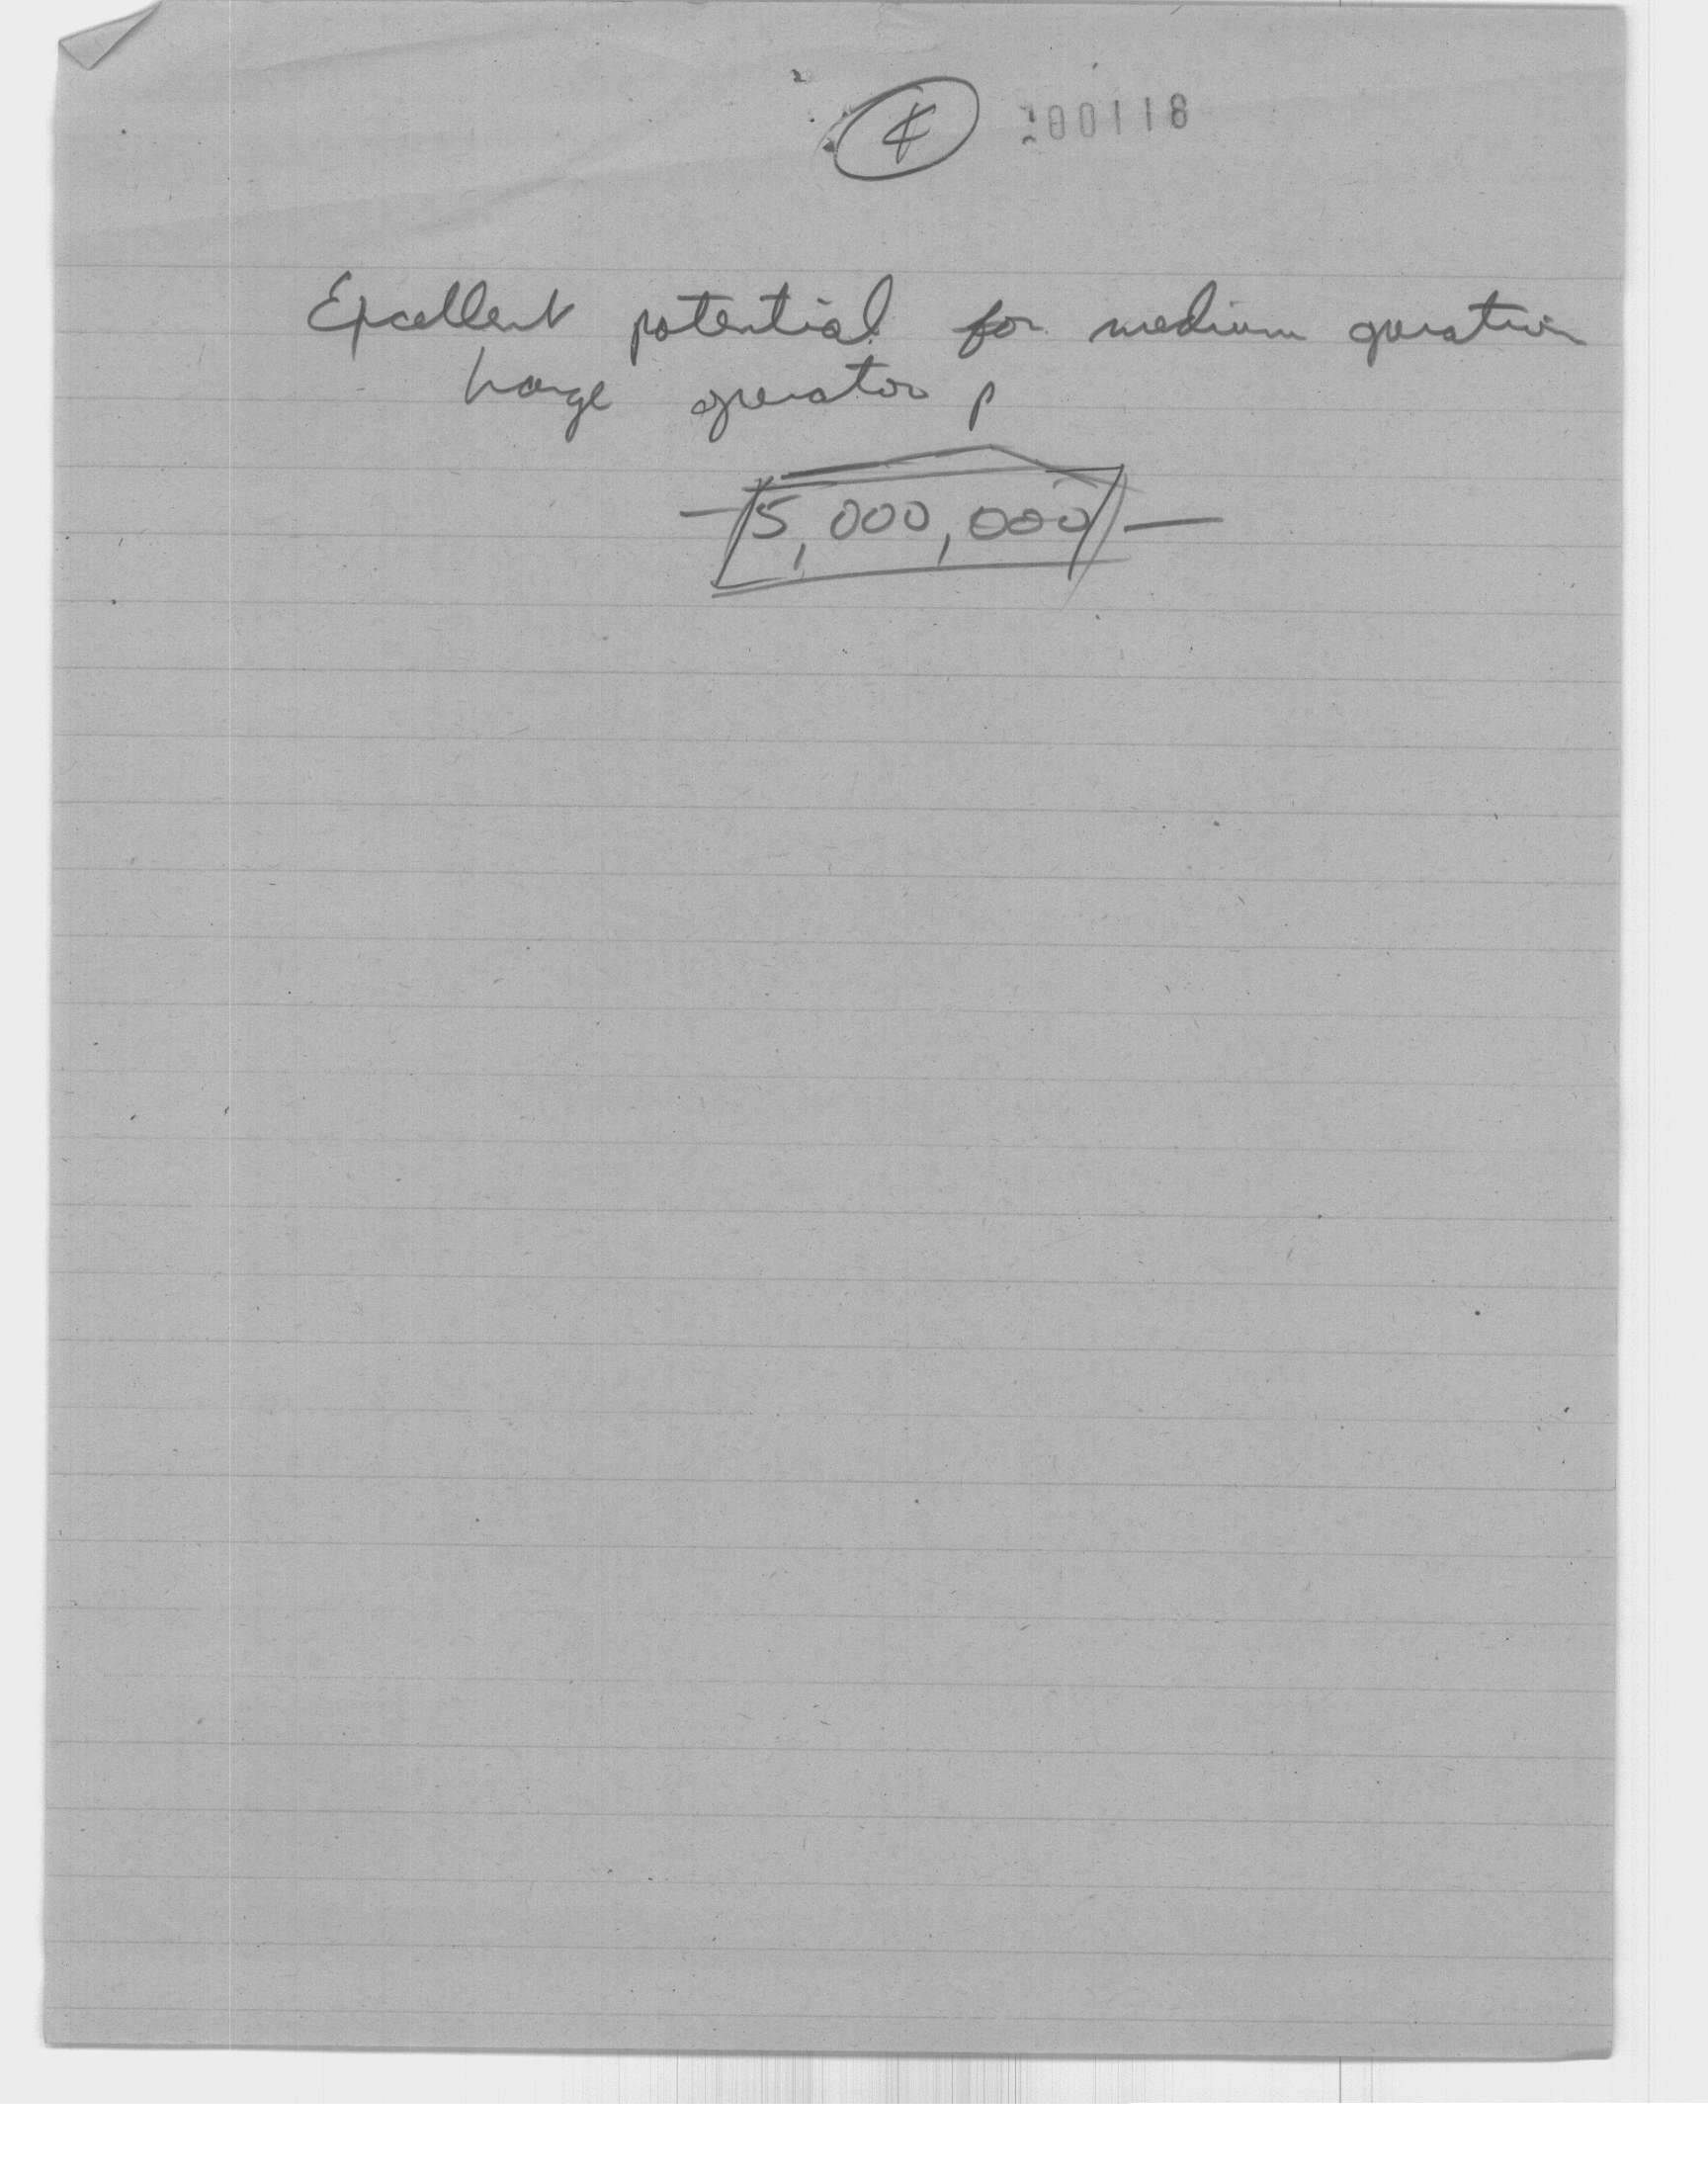 4 200118
Excellent potential for medium operation
large operator
5,000,000